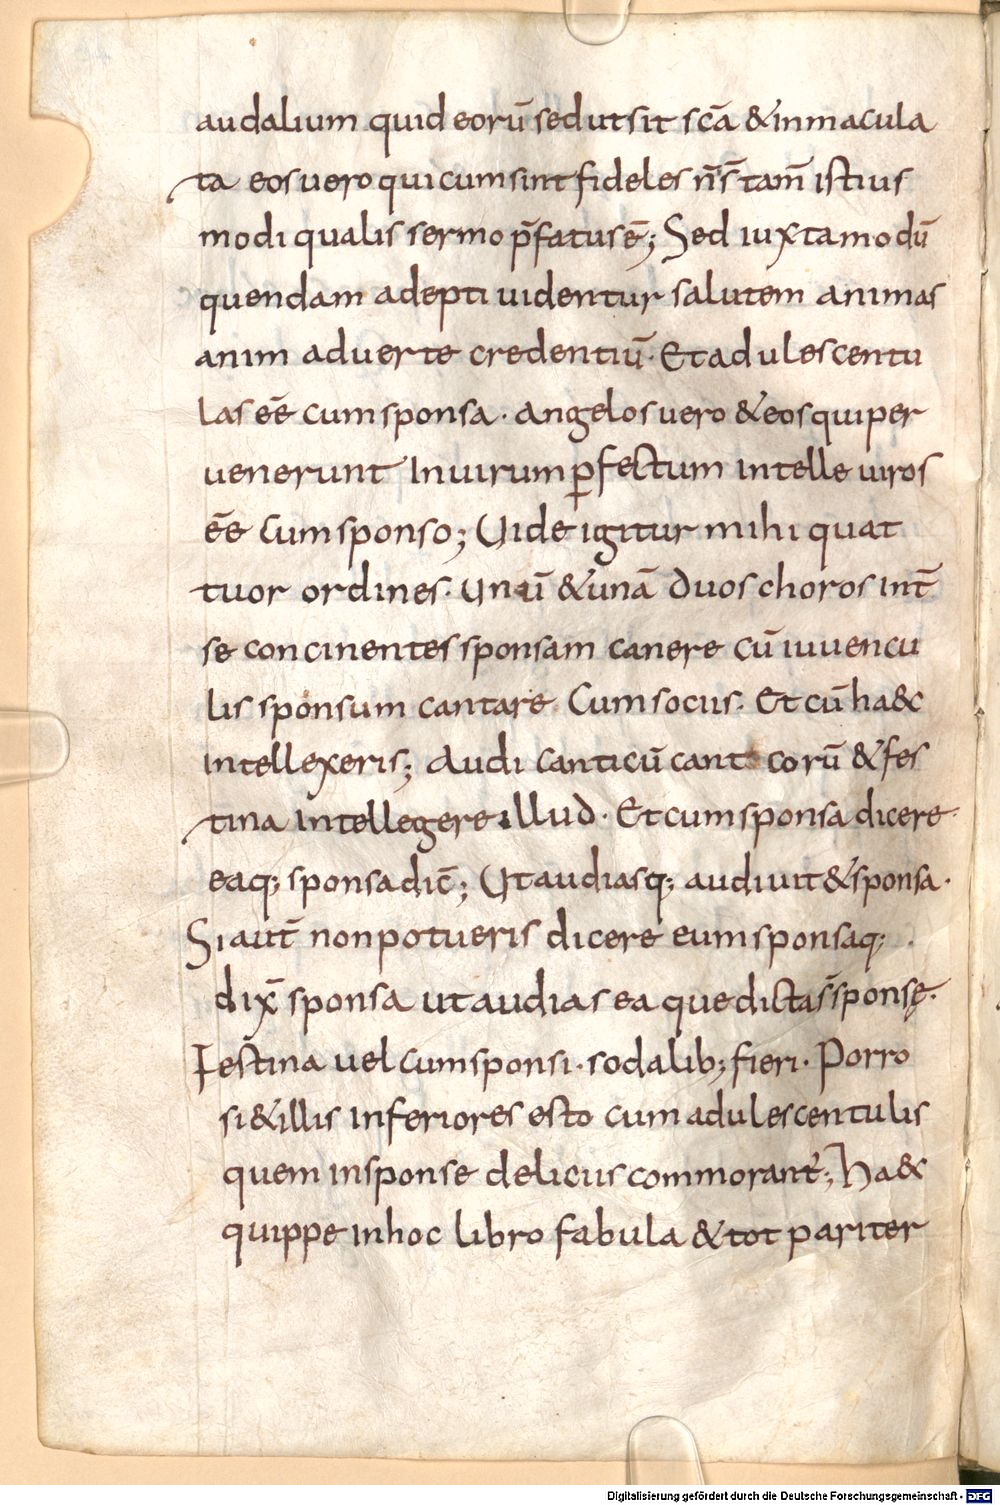 audalium quid eorū sed ut sit scā & inmacula
ta eos vero qui cum sint fideles ñ s̄ tam̄ istius
modi qualis sermo p̄fatus ē; Sed iuxta modū
quendam adepti uidentur salutem animas
anim aduerte credentiū· Et adulescentu
las eē cum sponsa· angelos vero & eos qui per
uenerunt In uirum ꝑfectum intelle uiros
eē cum sponso; Uide igitur mihi quat
tuor ordines· unū & unā duos choros int̄
se concinentes sponsam canere cū iuuencu
lis sponsum cantare Cum sociis· Et cū ha&c
intellexeris; Audi canticū cant corū & fes
tina intellegere illud· Et cum sponsa dicere·
eaq; sponsa dic̄; Ut audiasq; audiuit & sponsa·
Si aut̄ non potueris dicere eum sponsaq;·
dix̄ sponsa ut audias ea que dicta s̄ sponsę·
Festina uel cum sponsi· sodalib; fieri· Porro
si & illis inferiores esto cum adulescentulis
quem in sponse deliciis commorant̄; Ha&c
quippe in hoc libro fabula & tot pariter
Digitalisierung gefördert durch die Deutsche Forschungsgemeinschaft - DFG